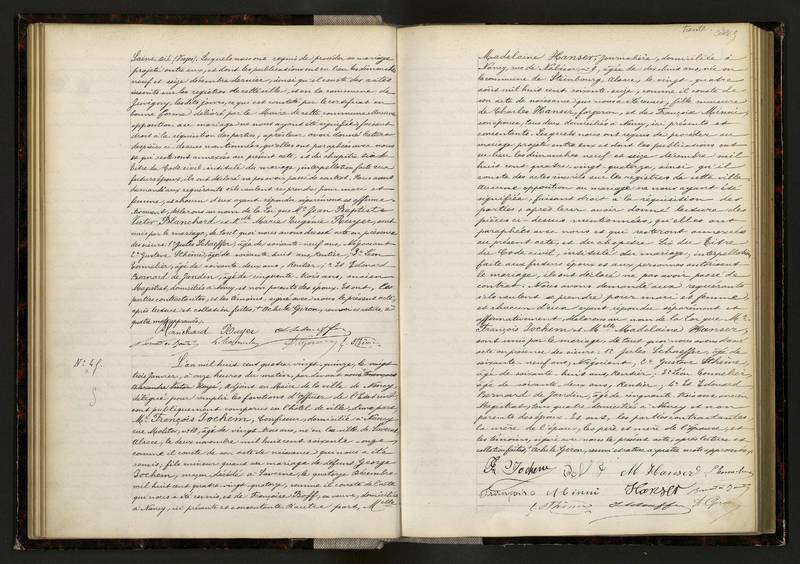 Saint dié (Vosges). Lesquels nous ont requis de procéder au mariage
projeté entre eux, et dont les publications ont eu lieu les dimanches
neuf et seize décembre dernier, ainsi qu'il conste des actes
inscrits sur les registres de cette ville, et en la commune de
opposition au mariage ne nous ayant été signifiée, faisant
droit à la réquisition des parties, après leur avoir donné lecture
des pièces ci-dessus mentionnées, qu'elles ont paraphées avec nous
et qui resteront annexées au présent acte, et du chapitre six du
titre du Code civil, intitulé du mariage, interpellation faite aux
futurs époux, ils ont déclaré ne pas avoir passé de contrat. Nous avons
demandé aux requérants s'ils veulent se prendre pour mari et
femme, et chacun d'eux ayant répondu séparément et affirma-
tivement, déclarons au nom de la loi, que Mr Jean Baptiste
Victor Blanchard et Delle Marie Eugénie Ruyer, sont
unis par le mariage, de tout quoi nous avons dressé acte en présence
des sieurs 1° Jules Schaeffer, âgé de soixante neuf ans, Négociant
2° Gustave Schimé, âgé de soixante huit ans, Rentier, 3° Léon
âgé de soixante deux ans, Rentier, 4° Et Edouard
Bernard de Jandin, âgé de cinquante trois ans, ancien
Magistrat, domiciliés à Nancy, et non parents des époux. Et ont, les
parties contractantes, et les témoins, signé avec nous le présent acte,
après lecture et collation faites.
Blanchard Ruyer J. Schaeffer
N° 45.
L'an mil huit cent quatre vingt quinze, le vingt
trois Janvier, à onze heures du matin, par devant nous François
adjoint au Maire de la ville de Nancy
délégué pour remplir les fonctions d'officier de l'Etat civil
sont publiquement comparus en l'hôtel de ville, d'une part,
Mr François Jochem, Confiseur, domicilié à Nancy,
rue Molitor, âgé de vingt trois ans, né en la ville de Saverne
Alsace, le deux novembre mil huit cent soixante onze
comme il conste de son acte de naissance qui nous a été
remis, fils mineur quant au mariage de défunt George
Jochem, décédé à Saverne, le quatorze
mil huit cent quatre vingt quatorze, comme il conste de l'acte
qui nous a été remis, et de Françoise Boff, sa veuve, domiciliée
à Nancy, ici présente et consentante. D'autre part, Melle
Trente
Madelaine Hanser, journalière, domiciliée à
Nancy, rue de Nabécor, âgée de dix huit ans, née en
la commune de Steinbourg, Alsace, le vingt quatre
août mil huit cent soixante seize, comme il conste de
son acte de naissance qui nous a été remis, fille mineure
de Charles Hanser, forgeron, et de Françoise Minni,
son épouse, tous deux domiciliés à Nancy, ici présents et
consentants. Lesquels nous ont requis de procéder au
mariage projeté entre eux et dont les publications ont
eu lieu les dimanches neuf et seize décembre mil
huit cent quatre vingt quatorze, ainsi qu'il
conste des actes inscrits sur les registres de cette ville
aucune opposition au mariage ne nous ayant été
signifiée, faisant droit à la réquisition des
parties, après leur avoir donné lecture des
pièces ci-dessus mentionnées, qu'elles ont
paraphées avec nous et qui resteront annexées
au présent acte, et du chapitre six du titre
du Code civil, intitulé du mariage, interpellation
faite aux futurs époux et aux personnes autorisant
le mariage, ils ont déclaré ne pas avoir passé de
contrat. Nous avons demandé aux requérants
s'ils veulent se prendre pour mari et femme
et chacun d'eux ayant répondu séparément et
affirmativement, déclarons au nom de la loi que Mr
François Jochem et Melle Madelaine Hanser,
sont unis par le mariage, de tout quoi nous avons dressé
acte en présence des sieurs 1° Jules Schaeffer, âgé de
soixante neuf ans, Négociant, 2° Gustave Schimé,
âgé de soixante huit ans, Rentier, 3° Léon
âgé de soixante deux ans, Rentier, 4° Et Edouard
Bernard de Jandin, âgé de cinquante trois ans, ancien
Magistrat, tous quatre domiciliés à Nancy, et non
parents des époux. Et ont, les parties contractantes,
la mère de l'époux, les père et mère de l'épouse, et
les témoins, signé avec nous le présent acte, après lecture et
collation faites.
Fr Jochem M Hanser
Françoise Minni Hanser
J. Schaeffer